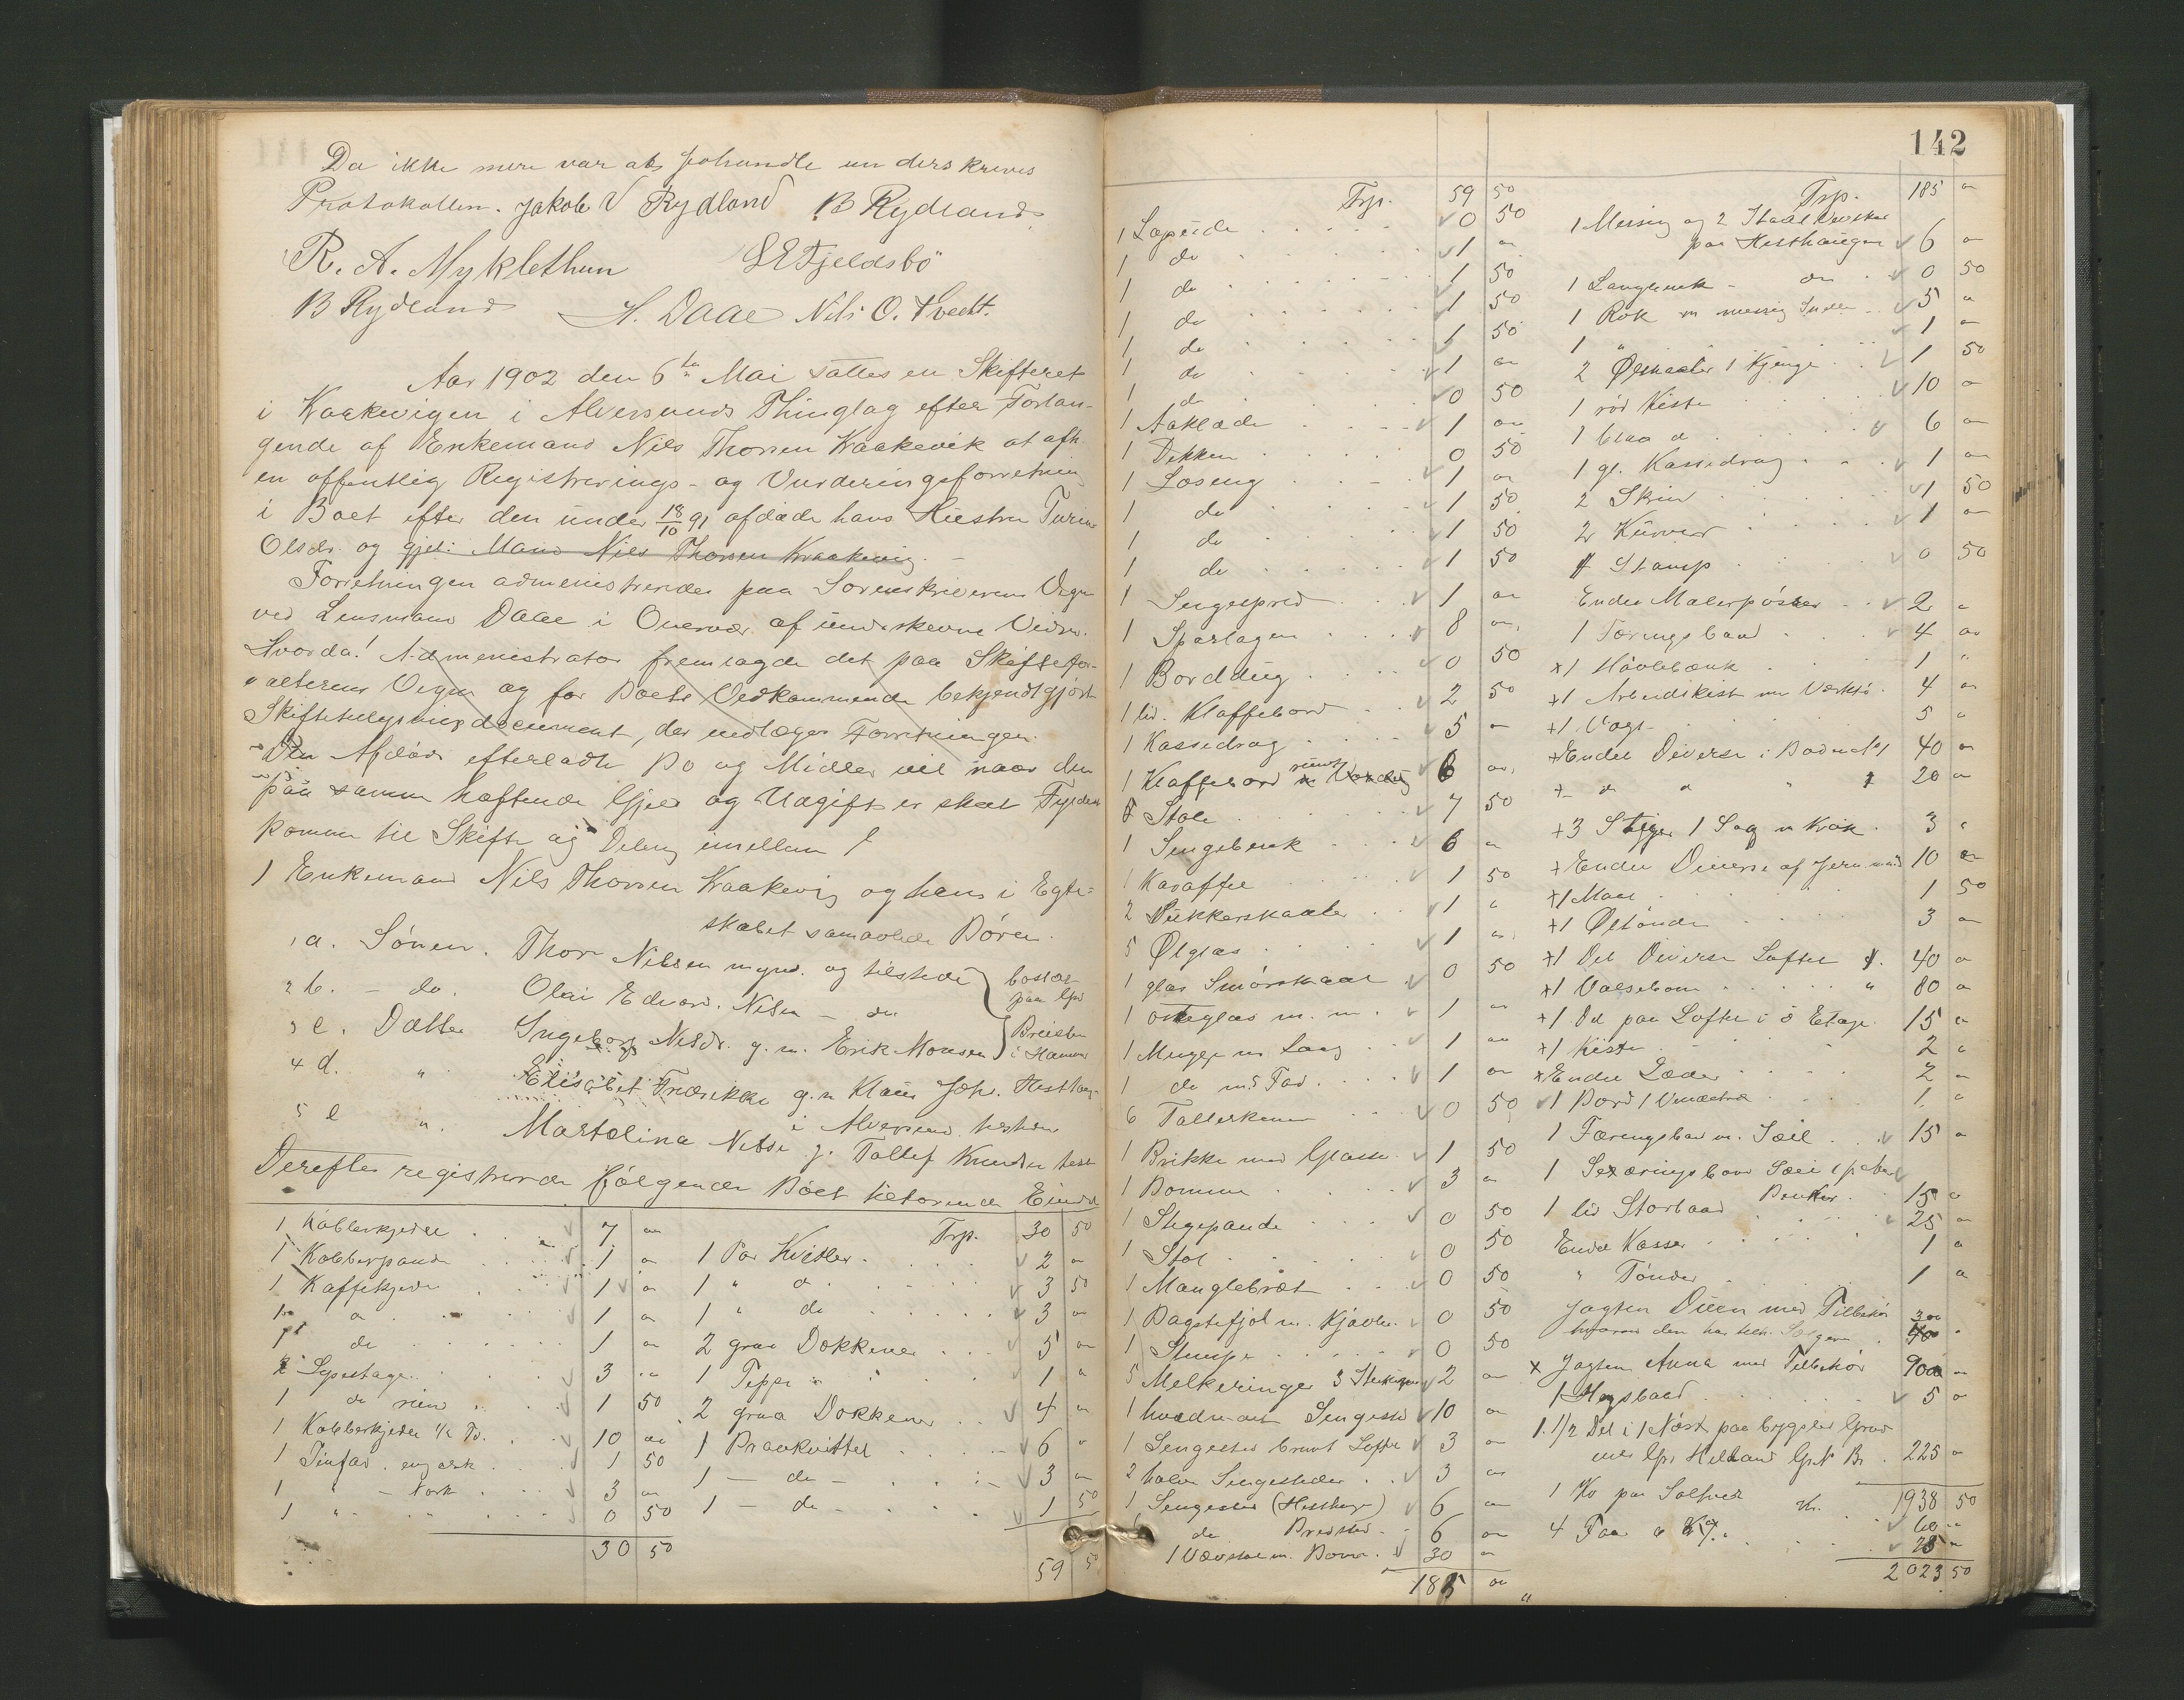 Da ikke mere var at forhandle un derskreves
Protokollen. Jakob V Rydland B Rydland
R. A. Myklethun LE Fjeldsbö
B Rydland H. Daae Nils O. Tvedt.
Aar 1902 den 6te Mai sattes en Skifteret
i Kraakevigen i Alversunds Thinglag efter Forlan-
gende af Enkemand Nils Thorsen Kraakevik at afh.
en offentlig Registrerings- og Vurderingsforretning
i Boet efter den under 18/10 91 afdøde hans Hustru Turine
Olsdr. og gjel: Mand Nils Thorsen Kraakevig.
Forretningen administreredes paa Sorenskriverens Vegne
ved Lensmand Daae i Overvær af underskrevne Vidner.
Hvorda! Administrator fremlagde det paa Skiftefor-
valterens Vegne og for Boets Vedkommende bekjendtgjort
Skiftetilsynsdocument, der indtages Forretningen.
Den Afdødes efterladte Bo og Midler vil naar den
paa samme hæftende Gjæld og Udgift er skeet Fyldest
komme til Skifte og Deling imellem
1 Enkemand Nils Thorsen Kraakevig og hans i Egte-
skabet samavlede Børn.
1 a. Sönnen. Thor Nilsen mynd. og tilstede bosat
paa Grd
2 b. - do. Olai Edvard Nilsen - do
3 c. Datter Ingeborg Nilsdr. g. m. Erik Monsen Breisten
i Hammer
4 d. " Elisabet Fredrikke g. m. Klaus Johs. Hesthaug
i Alversund tilstede
5 e ". Martolina Nilsd g. Tollef Knudsen
Derefter registreredes følgende Boet tilhørende Eiendele
1 Kobberkjedel 7 "
1 Kobberpande 1 "
1 Kaffekjedel 1 "
1 do 1 "
1 do 1 "
2 Lysestager 3 "
1 do 1 50
1 Kobberkjedel 1/2 Td. 10 "
1 Tinfad, engelsk 1 50
1 " - Norsk 3 "
1 " " 0 50
30 50
Trp. 30 50
1 Par Kvitler 2 "
1 " do 3 50
1 " do 3 "
2 graa Dækkener 5 "
1 Teppe 1 "
2 graa Dækkener 4 "
1 6 "
1 - do - 3 "
1 - do - 1 50
59 50
142
Trp. 59 50
1 0 50
1 do 1 "
1 do 1 50
1 do 1 50
1 do 1 50
1 do 1 "
1 do 0 50
1 Aaklæde 1 "
1 Dekken 0 50
1 Loseng 1 "
1 do 1 50
1 do 1 50
1 do 1 50
1 Sengespred 1 "
1 Sparlagen 8 "
1 Borddug 0 50
1 lid. Klaffebord 2 50
1 Kassedrag 5 "
1 Klaffebord rundt 6 "
8 Stole 7 50
1 Sengebenk 6 "
1 Karaffel 1 50
2 Sukkerskaaler 1 "
5 Ølglas 1 "
1 glas Smörskaal 0 50
1 Osteglas m. m. 1 "
1 Mugge m Laag 1 "
1 do med Fad 1 "
6 Tallerkener 0 50
1 Brikke med Glasse 1 50
1 Bomme 3 "
1 Stegepande 0 50
1 Stol 0 50
1 Manglebræt 0 50
1 Bagstefjöl m. Kjævle 0 50
1 Stampe 0 50
5 Melkeringer 2 "
1 hvidmalet Sengested 10 "
1 Sengested brunt Lofte 3 "
2 halve Sengesteder 3 "
1 Sengested (Hesthaug) 6 "
do Bredsted 6 "
1 Vævstol m. Bom 30 "
185 "
Trp. 185 "
1 Messing og 2 Staal
paa Hesthaugen 6 "
1 Langbenk - do 0 50
1 Rok m messing 5 "
1 " 1 "
2 Ølskaaler 1 Kjenge 1 50
1 rød Kiste 10 "
1 blaa do 6 "
1 gl. Kassedrag 1 "
2 Skrin 1 50
2 Kurver 1 "
1 Stamp 0 50
Endel Malerpøtser 2 "
1 Færingsbaad 4 "
+1 Høvlebænk 1 "
+1 Arbeidskist m Værktö 4 "
+1 Vægt 5 "
+Endel Diverse i Boden N 1 40 "
+ " do do " 20 "
+3 Stiger 1 Sag m Krok 3 "
+Endel Diverse af Jern 10 "
+1 Maal 1 50
+1 Øltønde 3 "
+1 Del Diverse Loftet 40 "
+1 80 "
+1 Del paa Loftet i 3 Etage 15 "
+1 Kiste 2 "
+Endel Læder 2 "
1 Bord 1 1 "
1 Færingsbaad m. Seil 15 "
1 Sexæringsbaad Seil
15 "
1 lid Storbaad 25 "
Endel Kasser 1 "
" Tønder 1 "
Jagten Duen med Tilbehör
hvorom den har 300
x Jagten Anna med Tilbehör 900 "
1 5 "
1 1/2 Del i 1 Nöst paa bygslet Grund
225 "
Kr. 1938 50
1 Ko paa Solhver 60 "
4 Faar a Kr 7. 25 "
2023 50